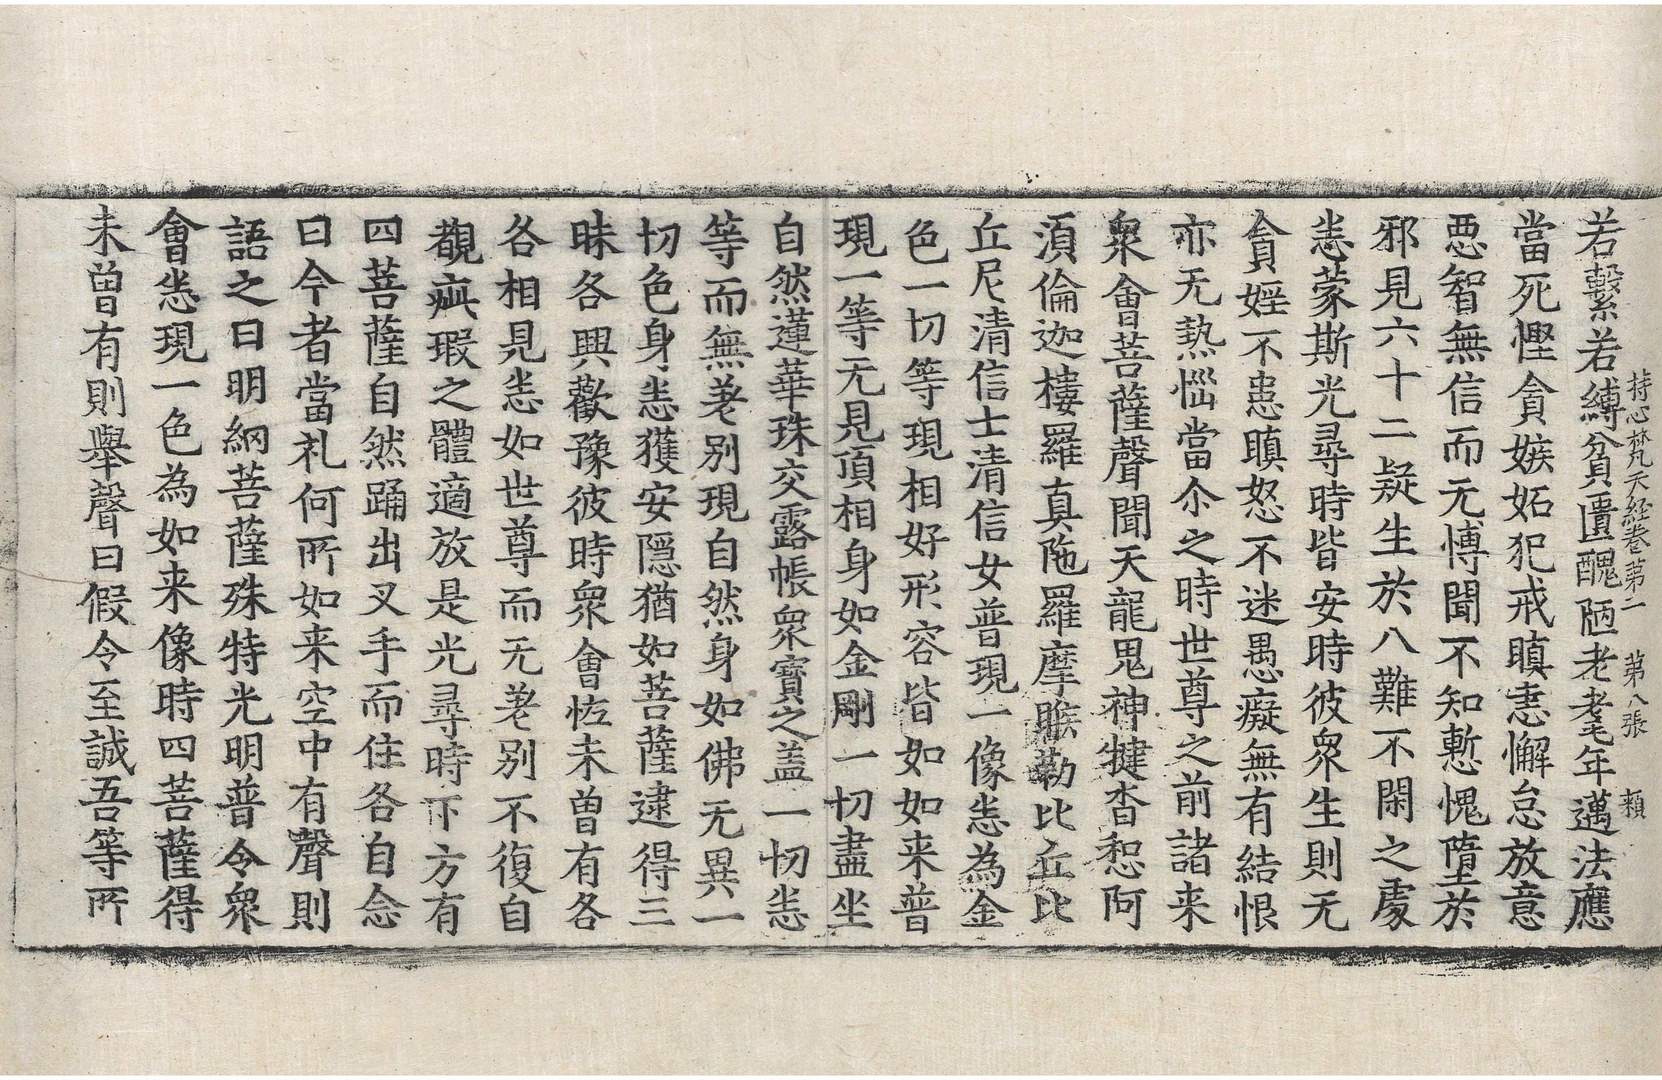 持心梵天經卷第一　第八張　頪
若繫若縛貧匱醜陋老耄年邁法應
當死慳貪嫉妬犯戒瞋恚懈怠放意
惡智無信而无博聞不知慙愧墮於
邪見六十二疑生於八難不閑之處
恚蒙斯光尋時皆安時彼衆生則无
貪婬不患瞋怒不迷愚癡無有結恨
亦无熱惱當尒之時世尊之前諸来
衆會菩薩聲聞天龍鬼神揵沓惒阿
湏倫迦樓羅真陁羅摩睺勒比丘比
丘尼清信士清信女普現一像恚為金
色一切等現相好形容皆如如来普
現一等无見頂相身如金剛一切盡坐
自然蓮華珠交露帳衆寶之盖一切恚
等而無差别現自然身如佛无異一
切色身恚獲安隱猶如菩薩逮得三
昧各興歡豫彼時衆會恠未曾有各
各相見恚如世尊而无差别不復自
覩疵瑕之體適放是光尋時下方有
四菩薩自然踊出叉手而住各自念
曰今者當礼何所如来空中有聲則
語之曰明網菩薩殊特光明普令衆
會恚現一色為如来像時四菩薩得
未曾有則舉聲曰假令至誠吾等所